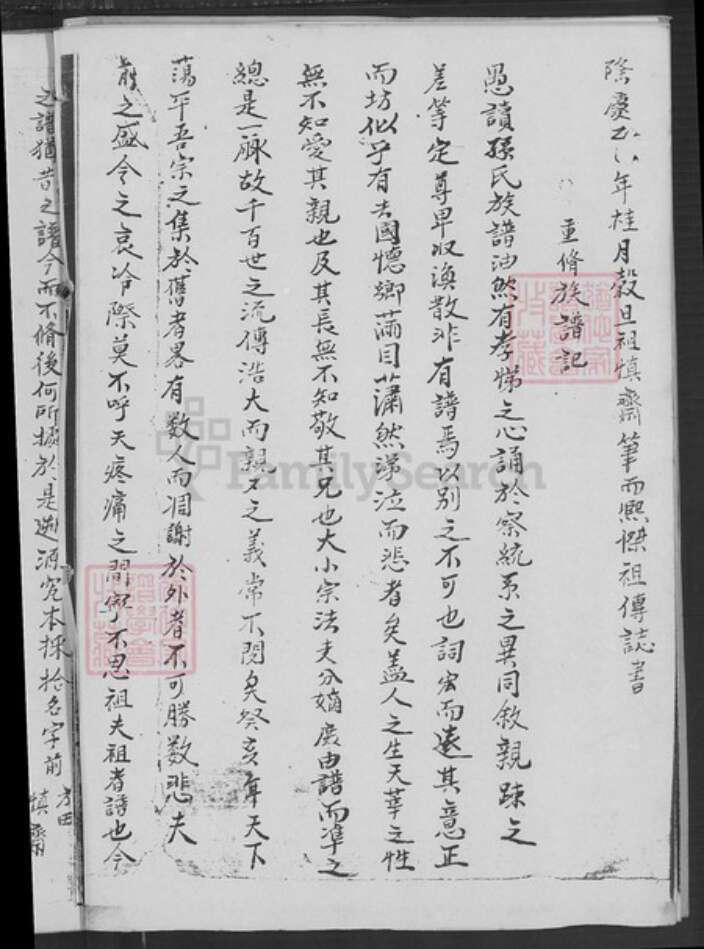 隆慶五年桂月穀旦祖慎齋筆而熙傑祖傳誌書
重脩族譜記
愚讀孫氏族譜油然有孝悌之心誦於察統系之異同敘親踈之
差等定尊卑収渙散非有譜焉以别之不可也詞宏而遠其意正
而坊似乎有去國懷鄉滿目蕭然涕泣而悲者矣盖人之生天莘之性
無不知愛其親也及其長無不知敬其兄也大小宗法夫分嫡庶由譜而準之
總是一脉故千百世之流傳浩大而親又之義常不閔矣癸亥年天下
蕩平吾宗之集於舊者畧有数人而凋謝於外者不可勝数悲夫
前之盛今之哀冷際莫不呼天疼痛之間寧不思祖夫祖者譜也今
之譜猶昔之譜今而不脩後何所據於是遡酒完本採拾名字前
方田
慎齋
FamilySearch